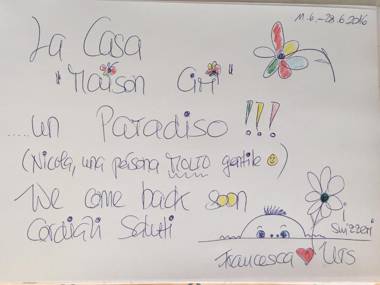 11.6.-28.6.2016
La Casa
"Maison Giri"
....un Paradiso !!!
(Nicola, una persona MOLTO gentile 🙂)
We come back soon
Cordiali Saluti
i Svizzeri
Francesca ❤ Urs